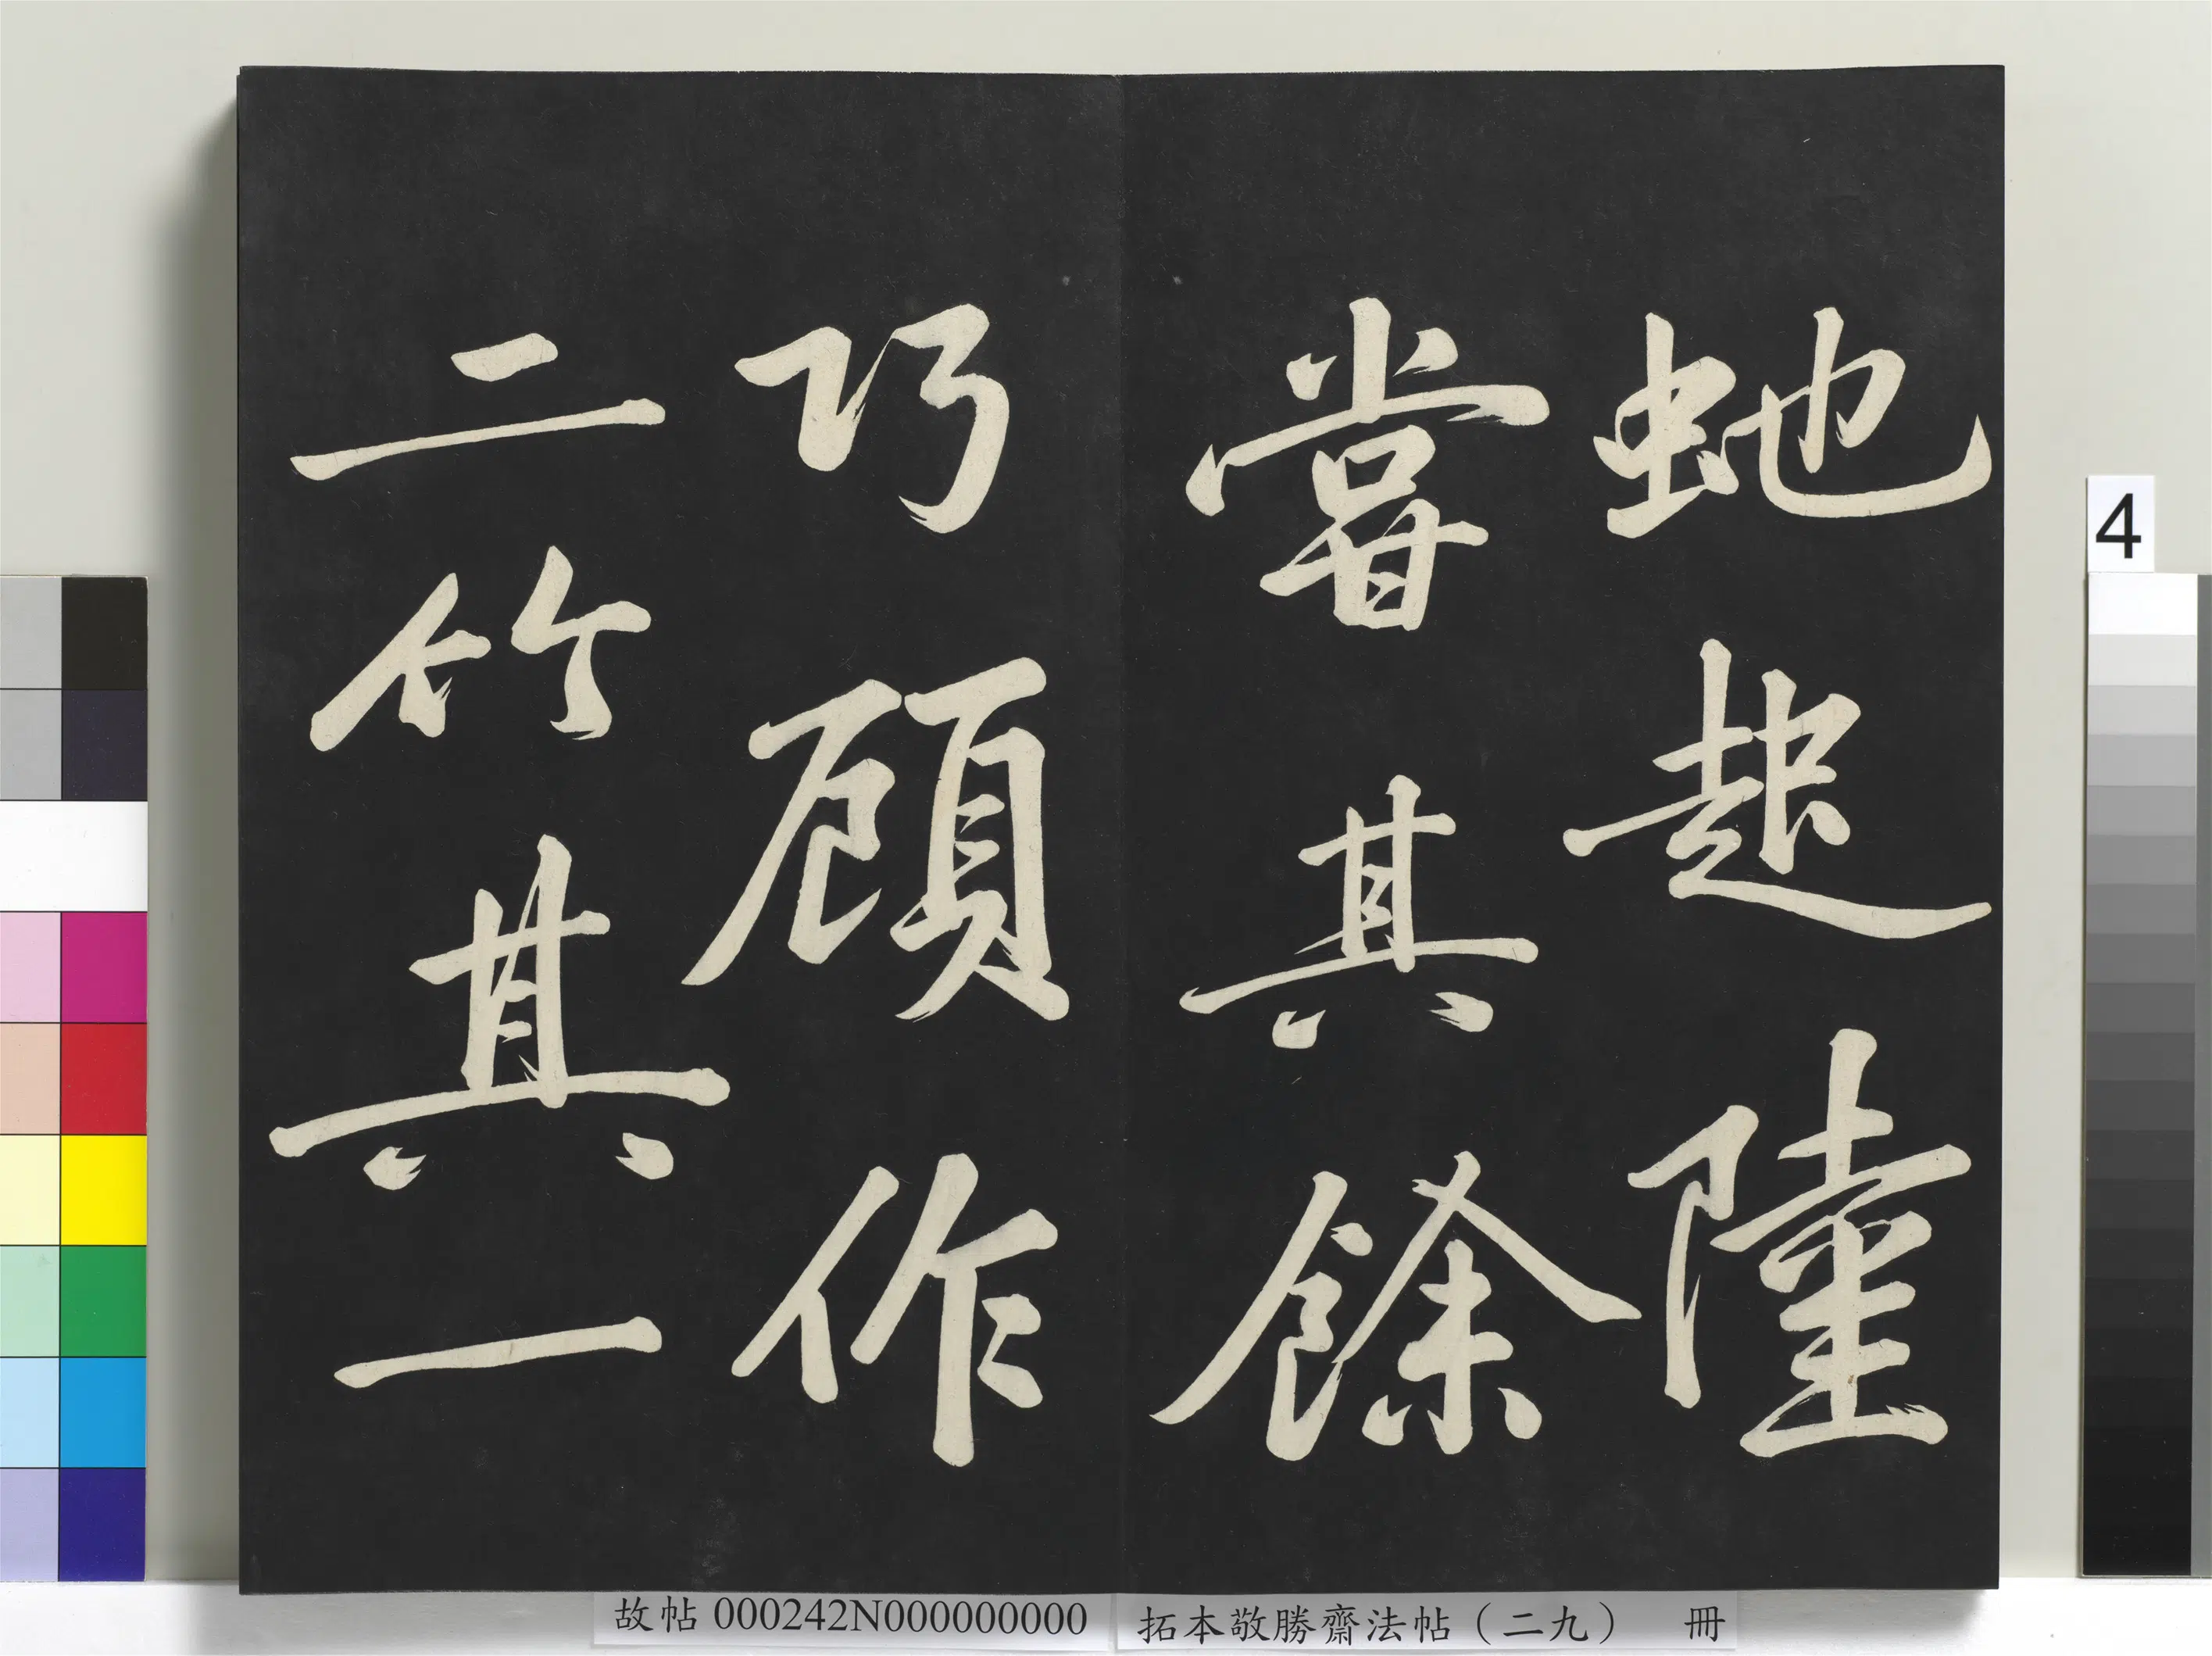 虵起陸
甞其餘
巧顧作
二竹其一
4
故帖 000242N000000000
拓本敬勝齋法帖（二九） 冊